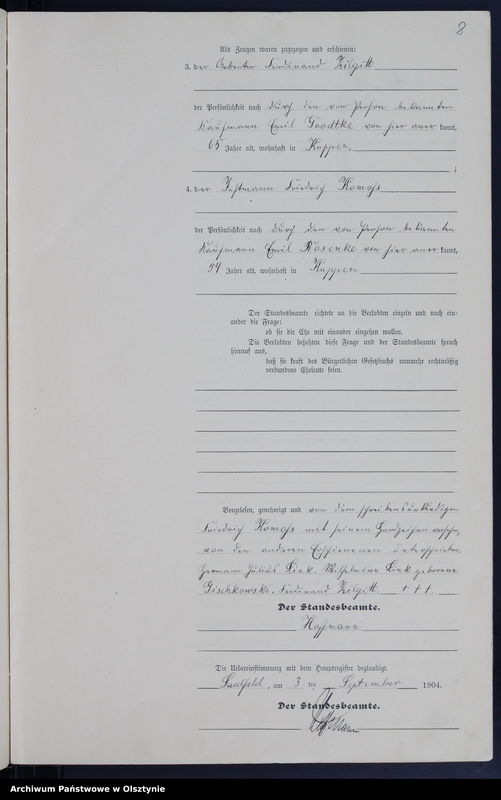 8
Als Zeugen waren zugezogen und erschienen:
3. der Arbeiter Ferdinand Zilgitt
der Persönlichkeit nach durch den von Person bekannten
Kaufmann Emil Grodtke von hier aner kannt,
65 Jahre alt, wohnhaft in Kuppen,
;
4. der Instmann Friedrich Komoss
der Persönlichkeit nach durch den von Person bekannten
Kaufmann Emil Rosenke von hier aner kannt,
Jahre alt, wohnhaft in Kuppen
Der Standesbeamte richtete an die Verlobten einzeln und nach ein-
ander die Frage:
ob sie die Ehe mit einander eingehen wollen.
Die Verlobten bejahten diese Frage und der Standesbeamte sprach
hierauf aus,
daß sie kraft des Bürgerlichen Gesetzbuchs nunmehr rechtmäßig
verbundene Eheleute seien.
Vorgelesen, genehmigt und von dem schreibensunkundigen
Friedrich Komoss mit seinem Handzeichen versehen,
von den anderen Erschienenen unterschrieben.
Hermann Julius Link. Wilhelmine Link geborene
Gischkowski. Ferdinand Zilgitt. + + +
Der Standesbeamte.
Hoffmann
Die Uebereinstimmung mit dem Hauptregister beglaubigt.
Saalfeld, am 3 ten September 1904.
Der Standesbeamte.
Hoffmann
Archiwum Państwowe w Olsztynie